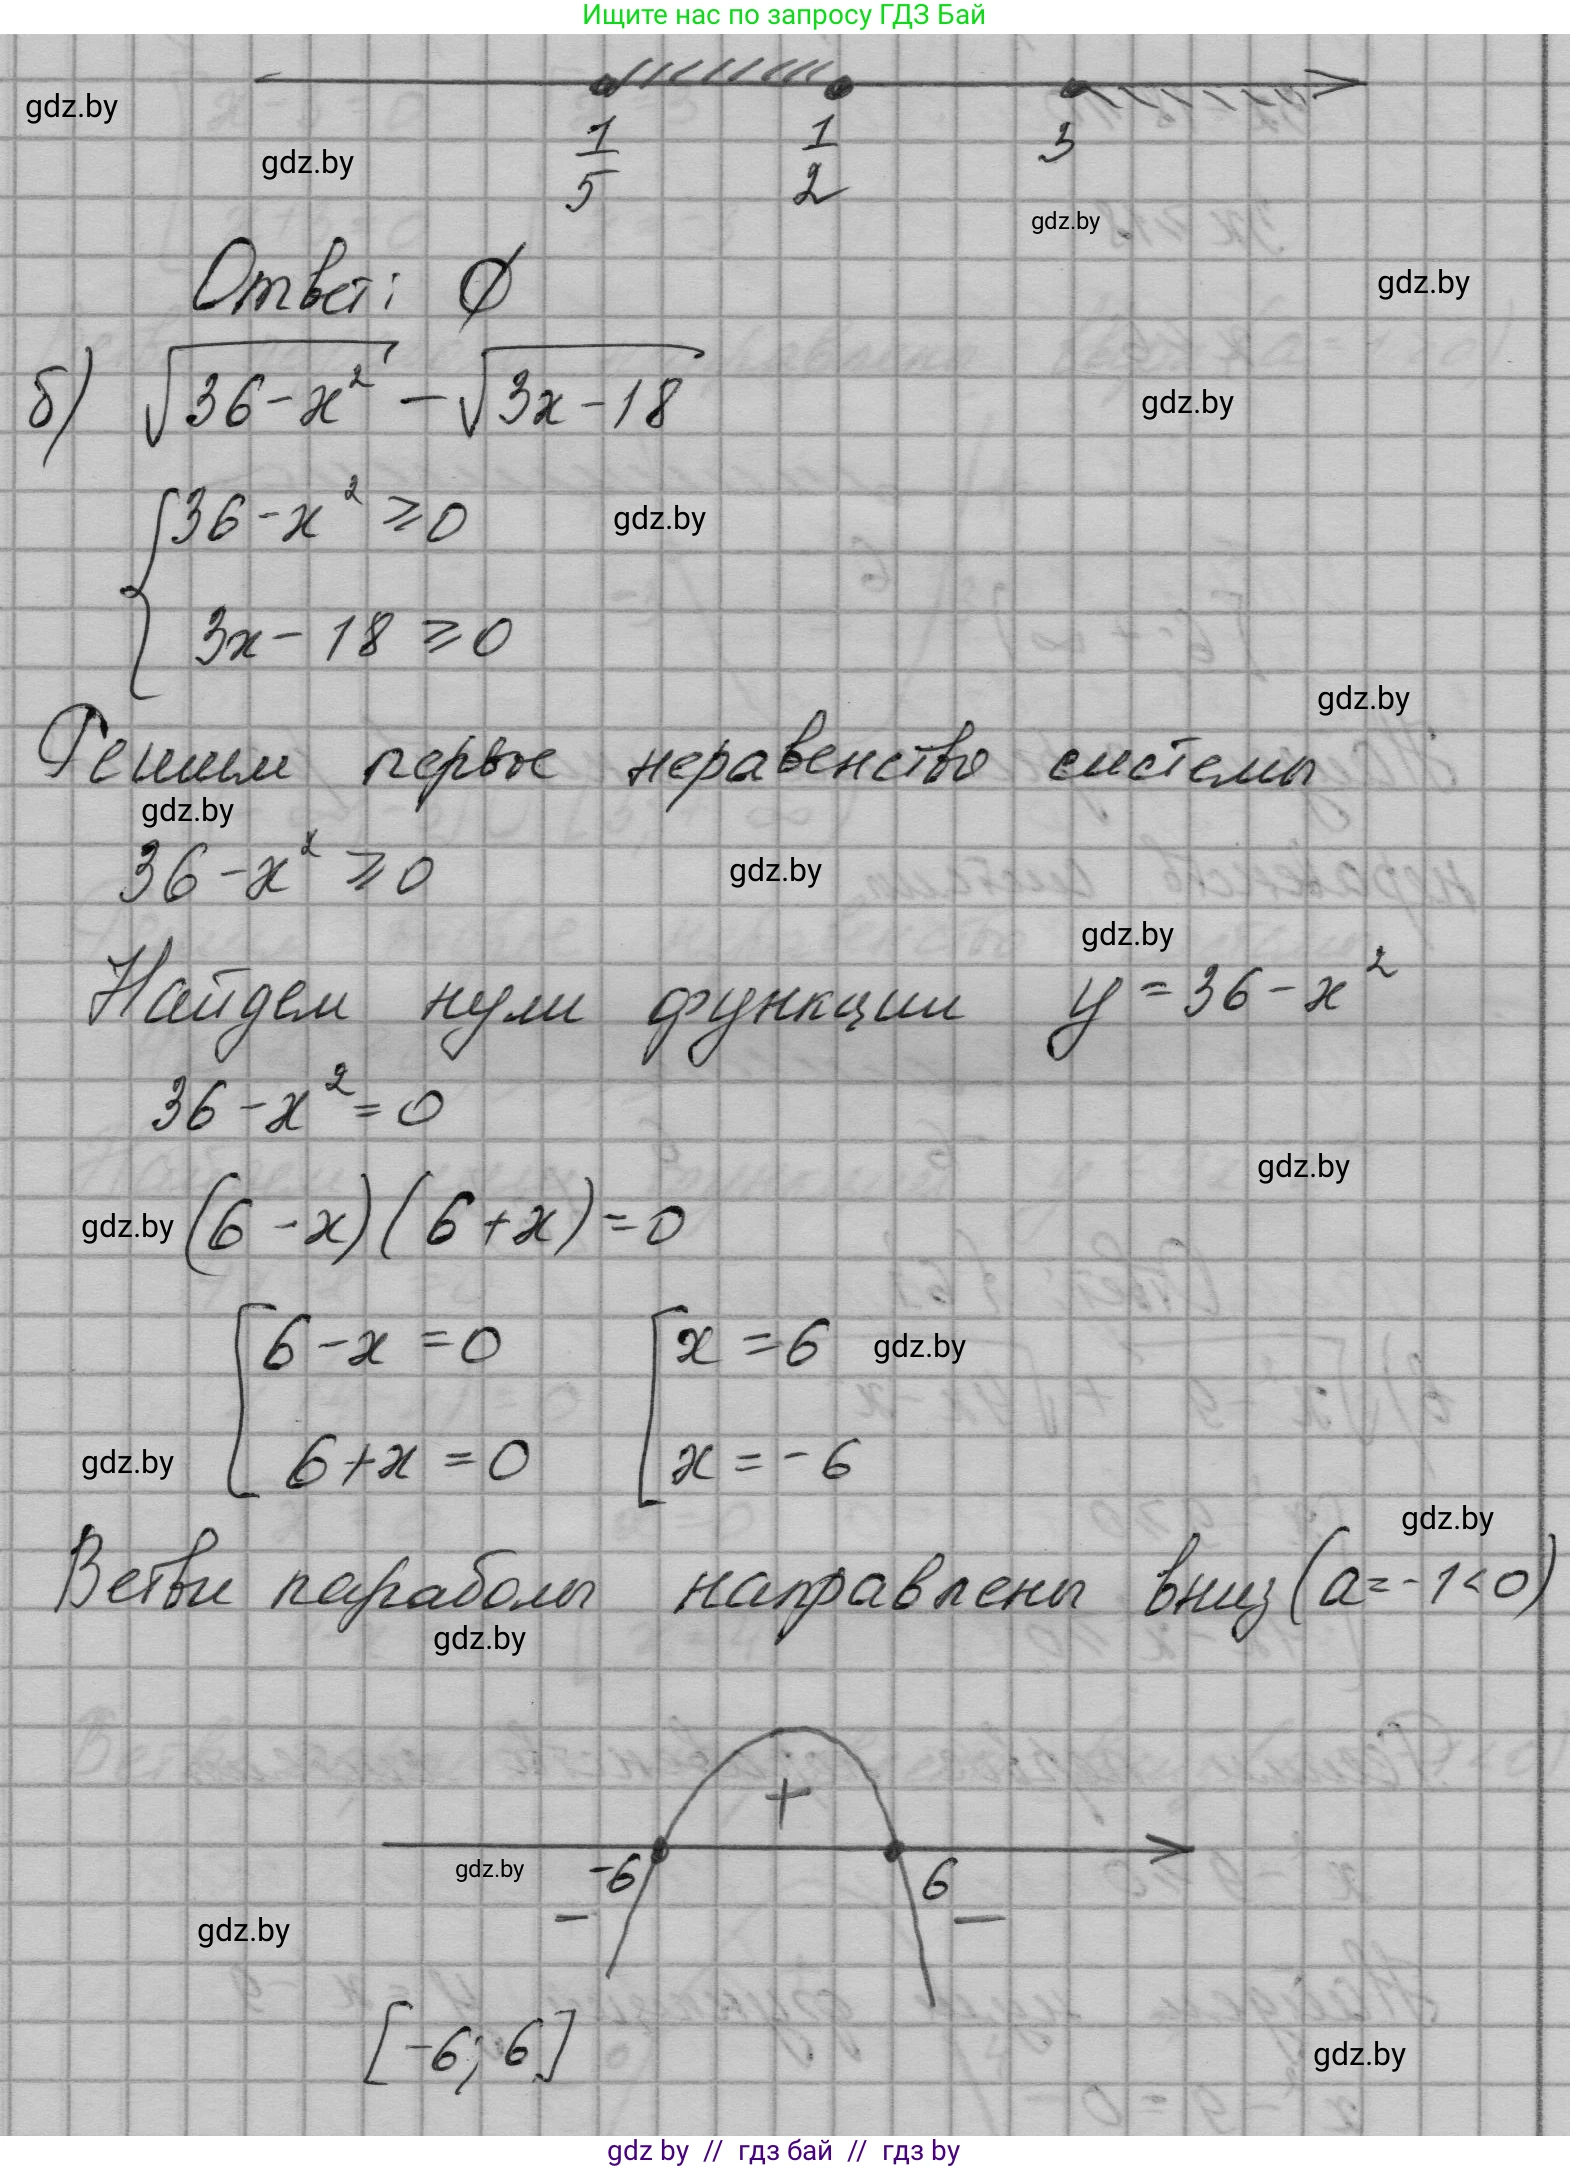 Ищите нас по запросу ГДЗ Бай
gdz.by
gdz.by
1/5 1/2 3
gdz.by
Ответ: ∅
gdz.by
б) √36-x² - √3x-18
gdz.by
{ 36-x² ⩾0
gdz.by
3x-18 ⩾0
gdz.by
Решим первое неравенство системы
gdz.by
36-x² ⩾0
gdz.by
gdz.by
Найдем нули функции y=36-x²
36-x²=0
gdz.by
gdz.by (6-x)(6+x)=0
[ 6-x=0 [ x=6
gdz.by
6+x=0 x=-6
gdz.by
gdz.by
Ветви параболы направлены вниз (a=-1<0)
gdz.by
+
-6 6
gdz.by
- -
gdz.by
[-6; 6]
gdz.by
gdz by // гдз бай // гдз by